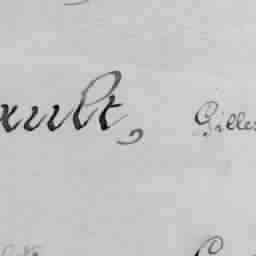 ault, Gilles